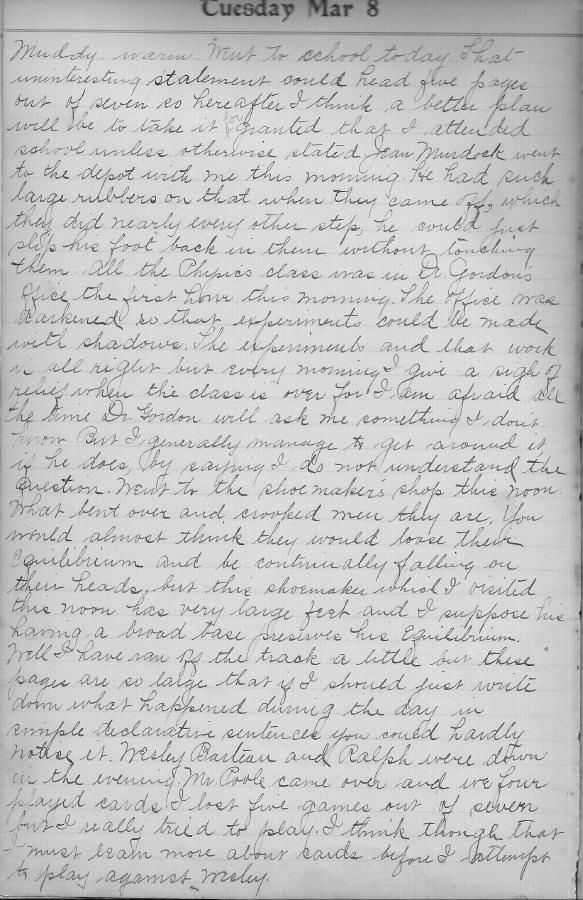 Tuesday Mar 8
Muddy. warm. Went to school today. That
uninteresting statement could head five pages
out of seven so hereafter I think a better plan
will be to take it for granted that I attended
school unless otherwise stated. Jean Murdock went
to the depot with me this morning. He had such
large rubbers on that when they came off, which
they did nearly every other step, he could just
slip his foot back in them without touching
them. All the Physics class was in Dr. Gordon's
office the first hour this morning. The office was
darkened so that experiments could be made
with shadows. The experiments and that work
is all right but every morning I give a sigh of
relief when the class is over for I am afraid all
the time Dr. Gordon will ask me something I don't
know But I generally manage to get around it
if he does, by saying I do not understand the
question. Went to the shoemaker's shop this noon.
What bent over and crooped men they are. You
would almost think they would loose their
Equilibrium and be continually falling on
their heads, but this shoemaker which I visited
this noon has very large feet and I suppose his
having a broad base preserves his Equilibrium.
Well I have ran off the track a little but these
pages are so large that if I should just write
down what happened during the day in
simple declarative sentences you could hardly
notice it. Wesley Barteau and Ralph were down
in the evening. Mr Poole came over and we four
played cards. I lost five games out of seven
but I really tried to play. I think though that
I must learn more about cards before I attempt
to play against Wesley.